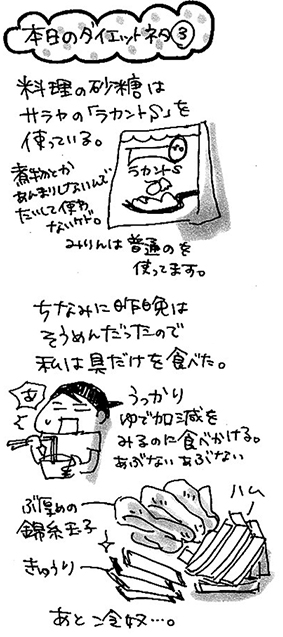 本日のダイエットネタ③
料理の砂糖は
サラヤの「ラカントS」を
使っている。
煮物とか
あんまりしないんで
たいして使わ
ないケド。
ラカントS
みりんは普通のを
使ってます。
ちなみに昨晩は
そうめんだったので
私は具だけを食べた。
あ
うっかり
ゆで加減を
みるのに食べかける。
あぶないあぶない
ぶ厚めの
錦糸玉子
ハム
きゅうり
あと冷奴…。